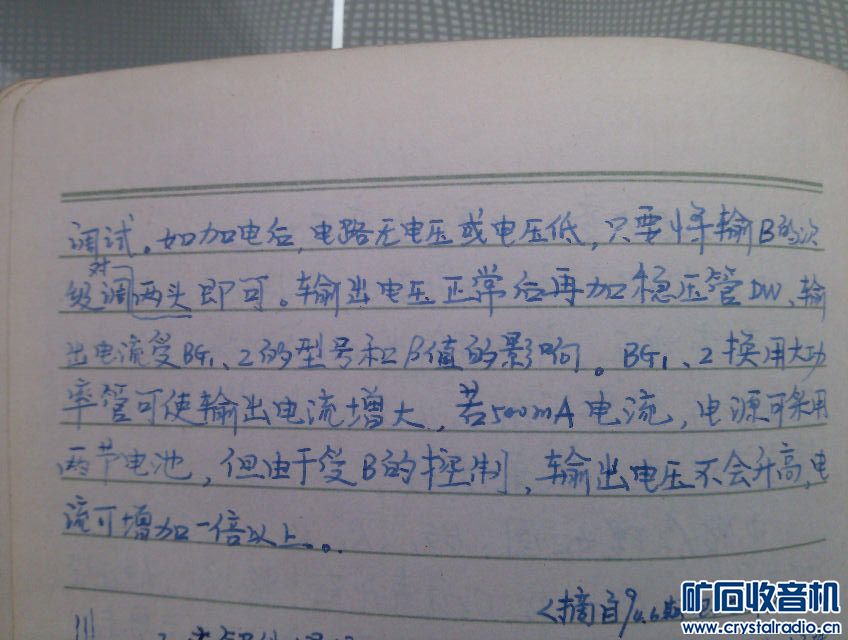 调试。如加电后,电路无电压或电压低,只要将输B的次
级对调两头即可。输出电压正常后再加稳压管DW、输
出电流受BG1、2的型号和β值的影响。BG1、2换用大功
率管可使输出电流增大,若500mA电流,电源可采用
两节电池,但由于受B的控制,输出电压不会升高,电
流可增加一倍以上。
<摘自94.6期
矿石收音机
www.crystalradio.cn